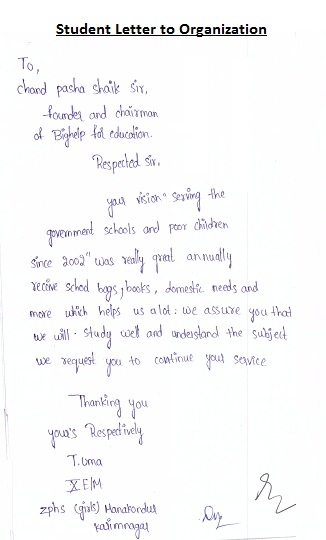 Student Letter to Organization
To,
chand pasha shaik sir,
founder and chairman
of Bighelp for education.
Respected sir,
your vision "serving the
government schools and poor children
since 2002" was really great annually
receive school bags, books, domestic needs and
more which helps us alot: we assure you that
we will study well and understand the subject
we request you to continue your service
Thanking you
your's Respectively
T. Uma
X E/M
zphs (girls) Manakondur
Karimnagar